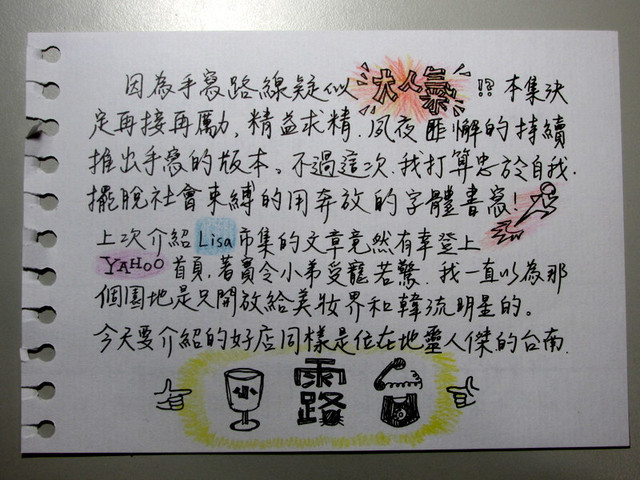 因為手寫路線疑似大人氣!?本集決
定再接再厲,精益求精.夙夜匪懈的持續
推出手寫的版本。不過這次.我打算忠於自我.
擺脫社會束縛的用奔放的字體書寫!
上次介紹Lisa市集的文章竟然有幸登上
YAHOO首頁.著實令小弟受寵若驚.我一直以為那
個園地是只開放給美妝界和韓流明星的。
今天要介紹的好店同樣是位在地靈人傑的台南.
小 露